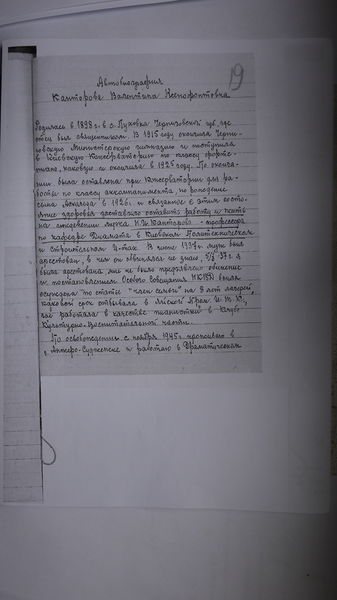 19
Автобиография
Канторова Валентина Ксенофонтовна
Родилась в 1898 г. в с. Пуховка Черниговской губ, где
отец был священником. В 1915 году окончила Черни-
говскую Министерскую гимназию и поступила
в Киевскую Консерваторию по классу форте-
пиано, каковую и окончила в 1925 году. По оконча-
нии была оставлена при Консерватории для ра-
боты по классу аккомпанимента, но рождение
сына в 1926 г. и связанное с этим состо-
яние здоровья заставило оставить работу и жить
на иждивении мужа Канторова - профессора
по кафедре Диамата в Киевском Политехническом
и Строительном И-тах. В июне 1937 г. муж был
арестован, в чем он обвинялся не знаю, 37 г. я
была арестована, мне не было предъявлено обвинение
и постановлением Особого Совещания НКВД была
осуждена по статье "член семьи" на 8 лет лагерей,
каковой срок отбывала в
где работала в качестве пианистки в клубе
Культурно-Воспитательной части.
По освобождении с ноября 1945 г. проживаю в
г. Анжеро-Судженске и работаю в Драматическом